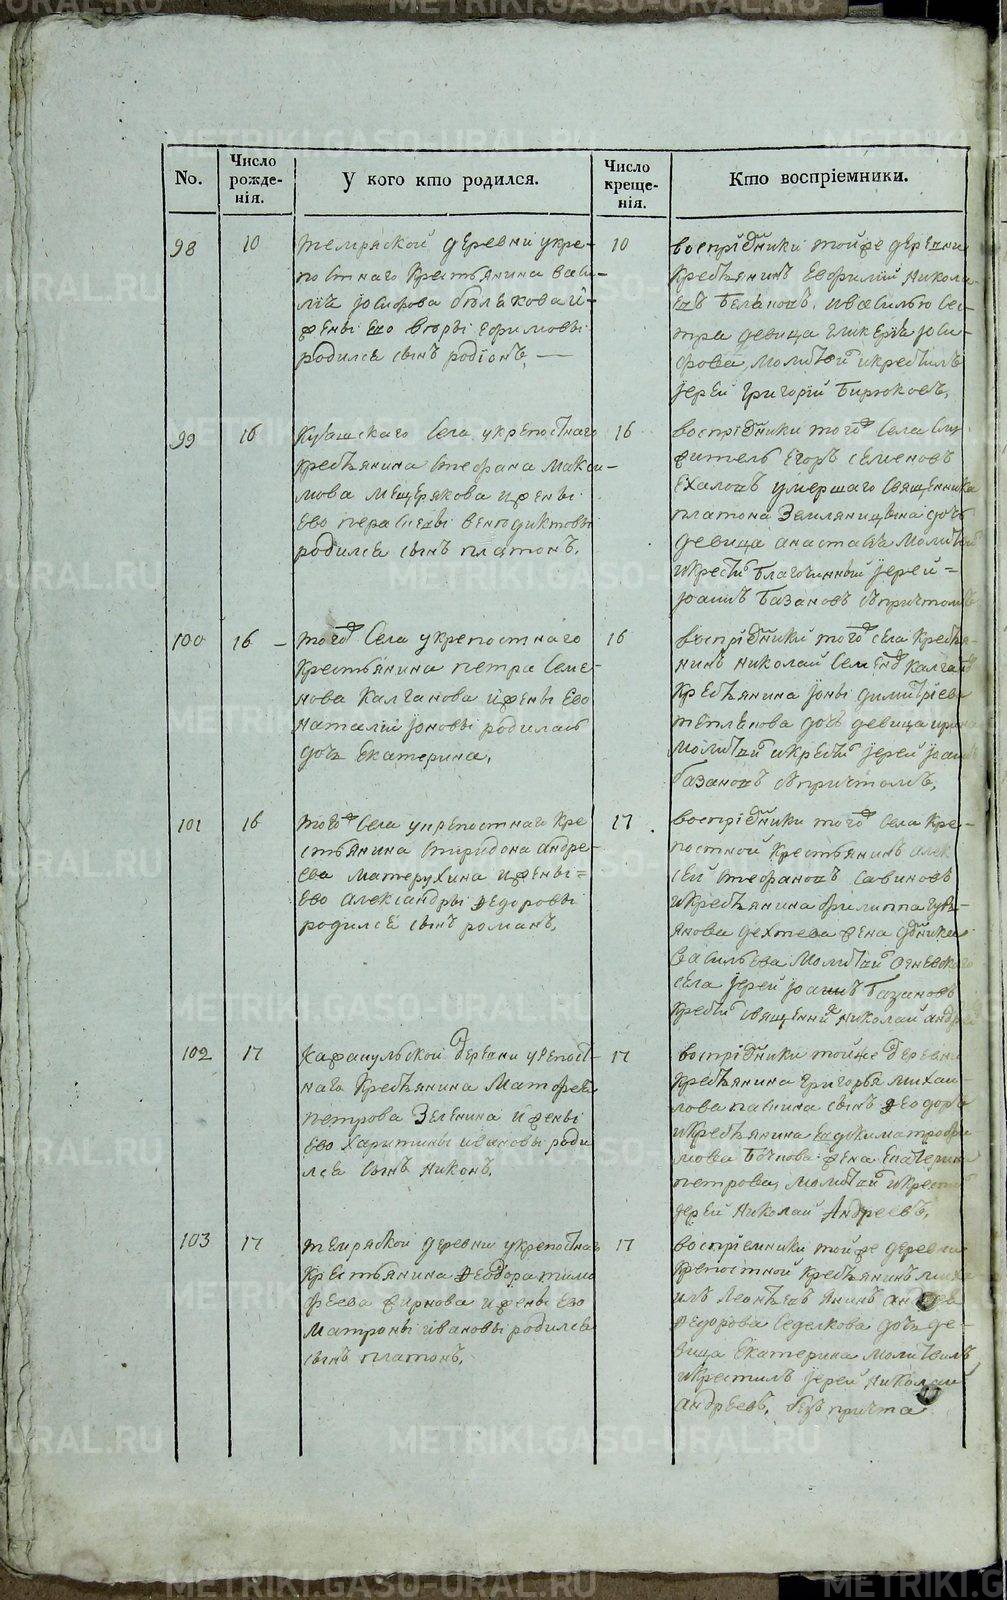 No.
Число рожде-нія.
У кого кто родился.
Число креще-нія.
Кто воспріемники.
98
10
темряской деревни укре-
постнаго крестьянина васи-
лія іосифова белькова и
жены ево
родился сынъ родіонъ,
10
воспріемники тойже деревни
крестьянинъ Евфимій никола-
евъ
тра девица гликерія іоси-
фова, молитвой и крестилъ
іерей григорій Бирюковъ,
99
16
села укрепостнаго
крестьянина стефана макси-
мова мещерякова и жены
ево
родился сынъ платонъ,
16
воспріемники того села слу-
житель егоръ семеновъ
умершаго священника
платона земляницына дочь
девица анастасія молитвой
и крестилъ благочинный іерей
іоаннъ базановъ с причтомъ
100
16
того села укрепостнаго
крестьянина петра семе-
нова калганова и жены ево
наталіи іоновы родилась
дочь екатерина,
16
воспріемники того села крестья-
нинъ николай семеновъ калгановъ
крестьянина іоны димитріева
дочь девица ирина
молитвой и крестилъ іерей іоаннъ
базановъ с причтомъ,
101
16
того села укрепостнаго кре-
стьянина спиридона андре-
ева матерухина и жены
ево александры федоровы
родился сынъ романъ,
17
воспріемники того села кре-
постной крестьянинъ алек
сей стефановъ савиновъ
и крестьянина филиппа
дехтева жена
васильева молитвой огневскаго
села іерей іоаннъ базановъ
крестилъ священникъ николай андре
102
17
деревни укрепост-
наго крестьянина матфея
петрова зеленина и жены
ево харитины ивановы роди
лся сынъ никонъ,
17
воспріемники тойже деревни
крестьянина григорья михаи-
лова сынъ феодоръ
и крестьянина
жена екатерина
петрова, молитвой и крестилъ
іерей николай Андреевъ,
103
17
темряской деревни укрепостнаго
крестьянина феодора тимо
феева жирнова и жены ево
матроны ивановы родился
сынъ платонъ,
17
воспріемники тойже деревни
крепостной крестьянинъ миха
илъ леонтьевъ
федорова седелкова дочь де-
вица екатерина молитвилъ
и крестилъ іерей николай
андреевъ, безъ причта
METRIKI.GASO-URAL.RU